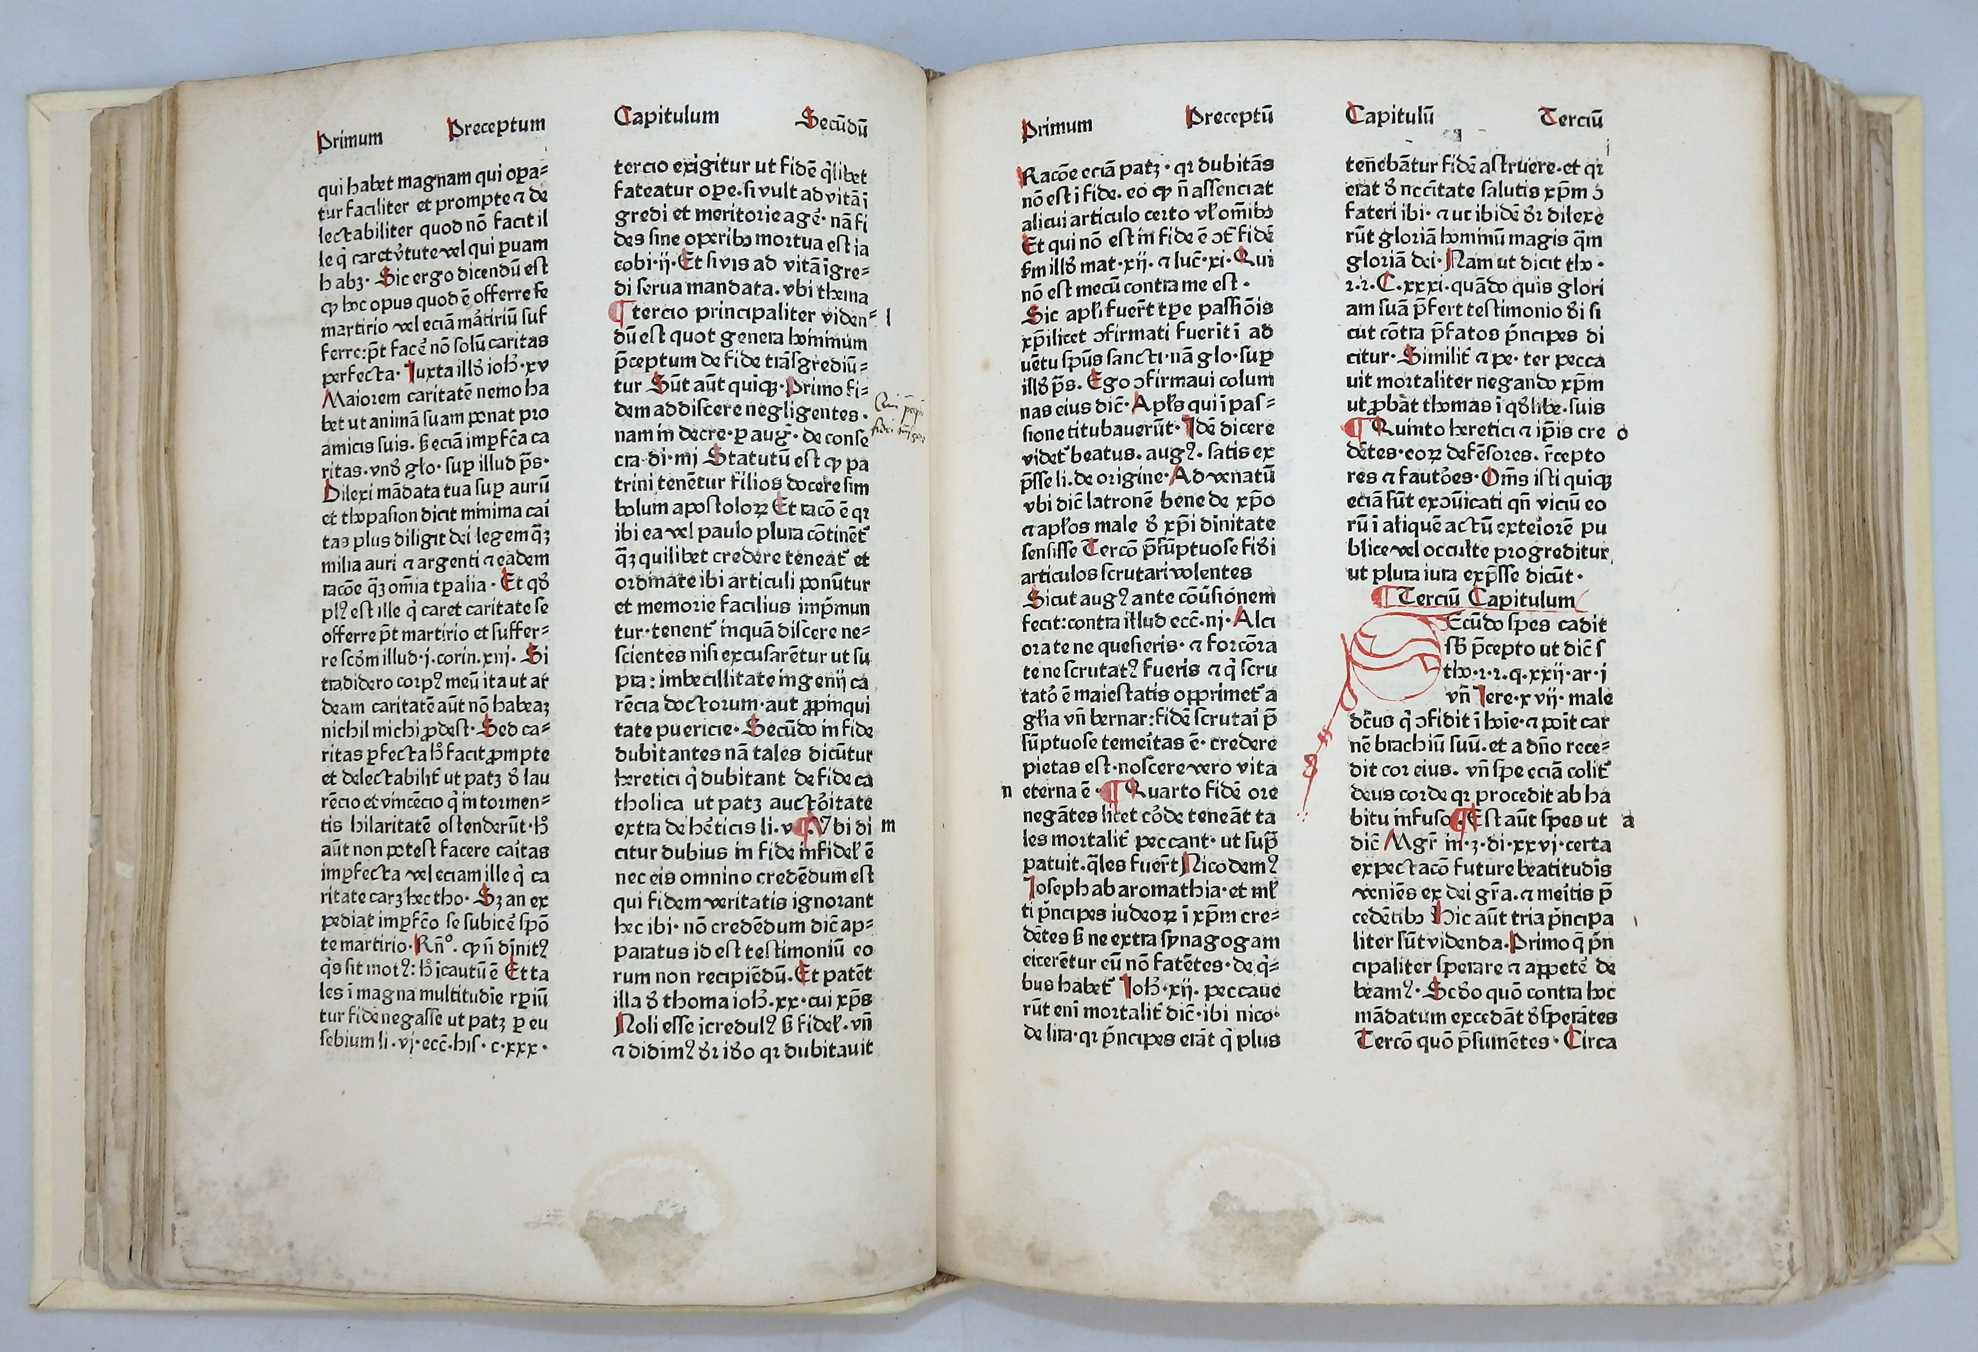 Primum Preceptum
qui habet magnam qui opa⸗
tur faciliter et prompte ⁊ de
lectabiliter quod nō facit il
le q̇ caret v̇tute vel qui puam
habꝫ· Sic ergo dicendū est
ꝙ hoc opus quod ē offerre se
martirio vel eciā mȧtiriū suf
ferre:p̄t facē nō solū caritas
perfecta· Juxta illď ioh̄·xv
Maiorem caritatē nemo ha
bet ut animā suam ponat pro
amicis suis· s̄ eciā imꝑfc̄a ca
ritas·vnď glo· suꝑ illud p̄s·
Dilexi mādata tua suꝑ aurū
et thopasion dicit minima cai
tas plus diligit dei legem q̄ꝫ
milia auri ⁊ argenti ⁊ eadem
racōe q̄ꝫ om̄ia tꝑalia· Et qď
plꝰ est ille q̇ caret caritate se
offerre p̄t martirio et suffer⸗
re scďm illud·j·corin·xiij· Si
tradidero corpꝰ meū ita ut ar
deam caritatē aūt nō habeaꝫ
nichil michi ꝓdest· Sed ca⸗
ritas ꝑfecta h̄ facit ꝓmpte
et delectabilit̄ ut patꝫ ď lau
rēcio et vincēcio q̇ in tormen⸗
tis hilaritatē ostenderūt·h̄
aūt non potest facere caītas
imꝑfecta vel eciam ille q̇ ca
ritate carꝫ hec tho· Sꝫ an ex
pediat imꝑfc̄o se subicē spō
te martirio· Rn̄º. ꝙ n̄ dj̄nitꝰ
q̇s sit motꝰ: h̄ icautū ē Et ta
les ī magna multitudīe rꝑiū
tur fidē negasse ut patꝫ ꝑ eu
sebium li·vj·ecc̄·his·c·xxx·
Capitulum Secūdū
tercio exigitur ut fidē q̇libet
fateatur oꝑe·si vult ad vitā ī
gredi et meritorie agē· nā fi
des sine operibꝫ mortua est ia
cobi·ij· Et si vis ad vitā īgre⸗
di serua mandata. vbi thema
¶ tercio principaliter viden⸗ l
dū est quot genera hominum
p̄ceptum de fide trāsgrediū⸗
tur Sūt aūt quiqꝫ· Primo fi⸗
dem addiscere negligentes·
nam in decre·ꝑ auḡ· de conse
cra·di·iiij Statutū est ꝙ pa
trini tenētur filios docere sim
bolum apostoloꝝ Et racō ē qr
ibi ea vel paulo plura cōtinēt̄
q̄ꝫ quilibet credere teneat̄ et
ordinate ibi articuli ponūtur
et memorie facilius imp̄mun
tur·tenent̄ inquā discere ne⸗
scientes nisi excusarētur ut su
pra: imbecillitate ingenij ca
rēcia doctorum·aut ꝓpinqui
tate puericie· Secūdo in fide
dubitantes nā tales dicūtur
heretici q̇ dubitant de fide ca
tholica ut patꝫ auctōitate
extra de hēticis li·v ¶ Vbi di m
citur dubius in fide infidel̄ ē
nec eis omnino credēdum est
qui fidem veritatis ignorant
hec ibi·nō credēdum dic̄ ap⸗
paratus id est testimoniū eo
rum non recipiēdū. Et patēt
illa ď thoma ioh̄·xx·cui xp̄s
Noli esse icredulꝰ s̄ fidel̄· vn̄
⁊ didimꝰ ďr iďo qr dubitauit
Primum Preceptū
Racōe eciā patꝫ· qr dubitās
nō est ī fide. eo ꝙ n̄ assenciat
alicui articulo certo vl̄ om̄ibꝫ
Et qui nō est in fide ē ↄt̄ fidē
sm̄ illď mat·xij. ⁊ luc̄·xi· Qui
nō est mecū contra me est·
Sic apl̄i fuer̄t tꝑe passiōis
xp̄i licet ↄfirmati fuerīt ī ad
uētu sp̄us sancti·nā glo·suꝑ
illď p̄s. Ego ↄfirmaui colum
nas eius dic̄· Apl̄s qui ī pas⸗
sione titubauerūt· Idē dicere
videt̄ beatus. augꝰ. satis ex
p̄sse li.de origine· Ad venatū
vbi dic̄ latronē bene de xp̄o
⁊ apl̄os male ď xp̄i diuinitate
sensisse Tercō p̄sūptuose fiďi
articulos scrutari volentes
Sicut augꝰ ante cōūsionem
fecit:contra illud ecc̄·iij· Alci
ora te ne quesieris· ⁊ forcōra
te ne scrutatꝰ fueris ⁊ q̇ scru
tatȯ ē maiestatis opprimet̄ a
gl̄ia vn̄ bernar:fidē scrutai p̄
sūptuose temeītas ē· credere
pietas est·noscere vero vita
n eterna ē· ¶ Quarto fidē ore
negātes licet coďe teneāt ta
les mortalit̄ peccant· ut sup̄
patuit. q̄les fuer̄t Nicodemꝰ
Joseph ab aromathia·et ml̄
ti p̄ncipes iudeoꝝ ī xp̄m cre⸗
dētes s̄ ne extra synagogam
eicerētur eū nō fatētes·de q̇⸗
bus habet̄ Ioh̄·xij. peccaue
rūt eni mortalit̄ dic̄·ibi nico·
de lira·qr p̄ncipes erāt q̇ plus
Capitulū Terciū
tenebātur fidē astruere·et qr
erat ď nccītate salutis xp̄m ↄ
fateri ibi·⁊ ut ibidē ďr dilexe
rūt gloriā hominū magis q̄m
gloriā dei· Nam ut dicit tho·
2·2· C·xxxi·quādo quis glori
am suā p̄fert testimonio ďi si
cut cōtra p̄fatos p̄ncipes di
citur· Similit̄ ⁊ pe·ter pecca
uit mortaliter negando xp̄m
ut ꝓbat thomas ī qďlibe·suis
¶ Quinto heretici ⁊ ip̄is cre o
dētes·eoꝝ defēsores. r̄cepto
res ⁊ fautōes· Om̄s isti quiqꝫ
eciā sūt excōuicati qn̄ viciū eo
rū ī aliquē actū exteiorē pu
blice vel occulte progreditur
ut plura iura exp̄sse dicūt·
¶ Terciū Capitulum
SEcūdo spes cadit
sb̄ p̄cepto ut dic̄ s
tho·2·2·q·xxij·ar·j
vn̄ Iere·xvij·male
dc̄us q̇ ↄfidit ī hoīe·⁊ poit car
nē brachiū suū·et a dn̄o rece⸗
dit cor eius· vn̄ spe eciā colit̄
deus corde qr procedit ab ha
bitu infuso· ¶ Est aūt spes ut a
dic̄ Mgr̄ in·3·di·xxvj·certa
expectacō future beatitudīs
veniēs ex dei gr̄a·⁊ meītis p̄
cedētibꝫ Hic aūt tria p̄ncipa
liter sūt videnda· Primo q̇ p̄n
cipaliter sperare ⁊ appetē de
beamꝰ· Scďo quō contra hoc
mādatum excedāt ďsperātes
Tercō quō p̄sumētes· Circa